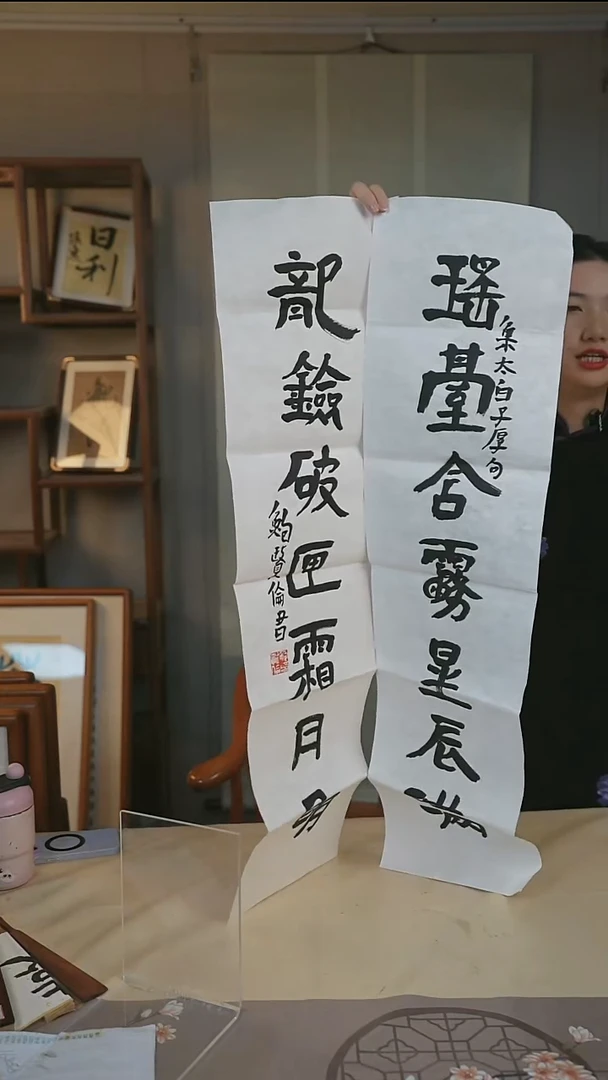 瑤臺含霧星辰滿
集太白子厚句
龍鐱破匣霜月明
鮑賢倫書
日利